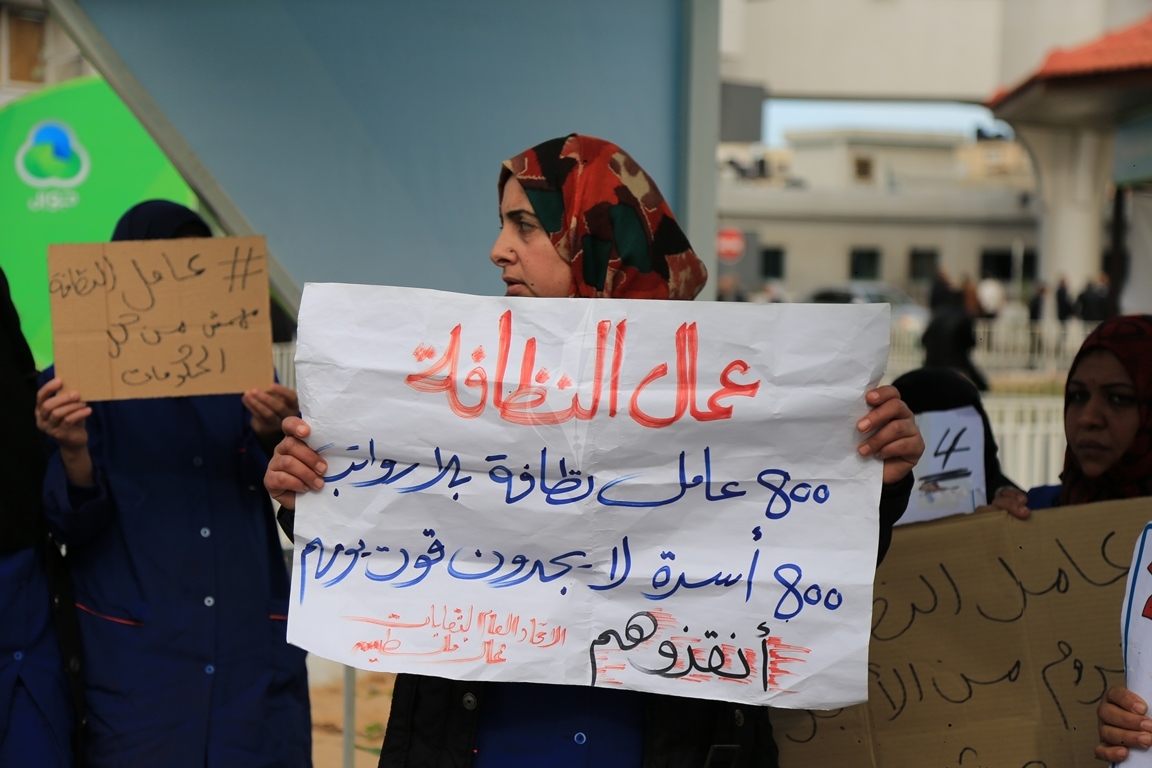 # عامل النظافة
مهمش من كل
الحكومات
جوال
عمال النظافة
800 عامل نظافة بلا رواتب
800 أسرة لا يجدون قوت يومهم
أنقذوهم
الاتحاد العام لنقابات
عمال فلسطين
4
عامل
من